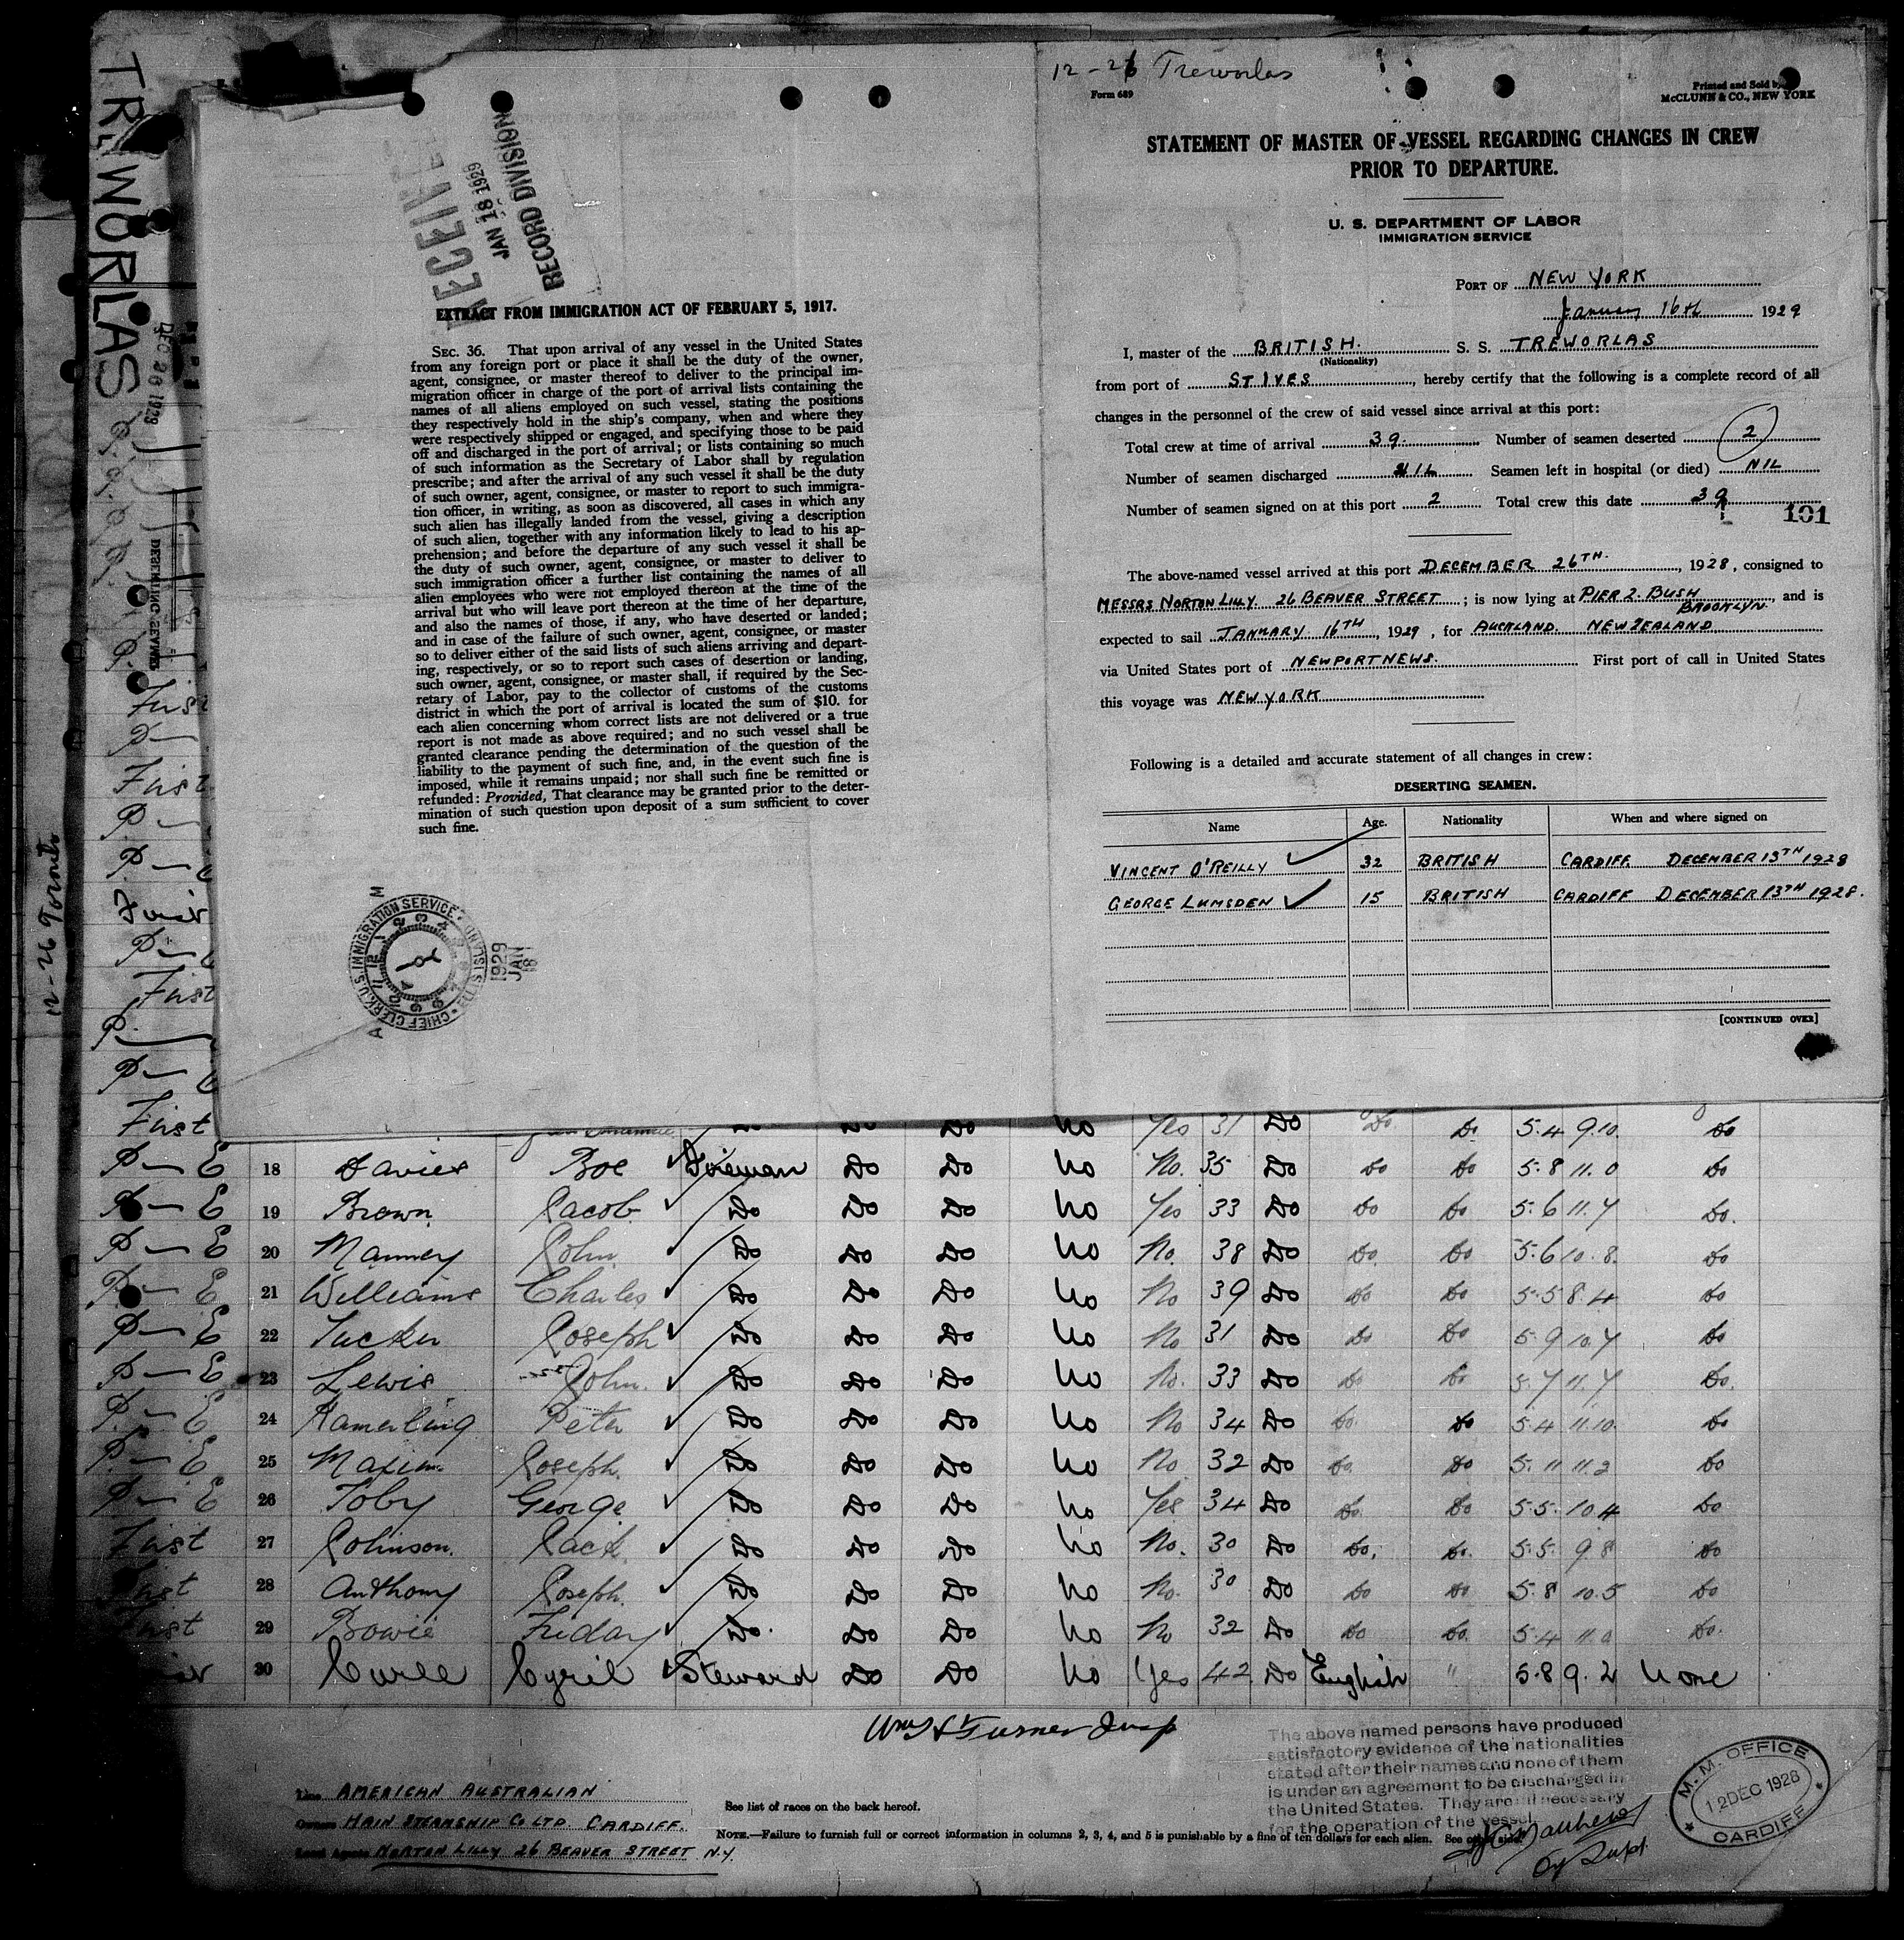 TREWORLAS
DEC 26 1928
12-26 Toronto
RECEIVED
JAN 18 1929
RECORD DIVISION
EXTRACT FROM IMMIGRATION ACT OF FEBRUARY 5, 1917.
SEC. 36. That upon arrival of any vessel in the United States
from any foreign port or place it shall be the duty of the owner,
agent, consignee, or master thereof to deliver to the principal im-
migration officer in charge of the port of arrival lists containing the
names of all aliens employed on such vessel, stating the positions
they respectively hold in the ship's company, when and where they
were respectively shipped or engaged, and specifying those to be paid
off and discharged in the port of arrival; or lists containing so much
of such information as the Secretary of Labor shall by regulation
prescribe; and after the arrival of any such vessel it shall be the duty
of such owner, agent, consignee, or master to report to such immigra-
tion officer, in writing, as soon as discovered, all cases in which any
such alien has illegally landed from the vessel, giving a description
of such alien, together with any information likely to lead to his ap-
prehension; and before the departure of any such vessel it shall be
the duty of such owner, agent, consignee, or master to deliver to
such immigration officer a further list containing the names of all
alien employees who were not employed thereon at the time of the
arrival but who will leave port thereon at the time of her departure,
and also the names of those, if any, who have deserted or landed;
and in case of the failure of such owner, agent, consignee, or master
so to deliver either of the said lists of such aliens arriving and depart-
ing, respectively, or so to report such cases of desertion or landing,
such owner, agent, consignee, or master shall, if required by the Sec-
retary of Labor, pay to the collector of customs of the customs
district in which the port of arrival is located the sum of $10. for
each alien concerning whom correct lists are not delivered or a true
report is not made as above required; and no such vessel shall be
granted clearance pending the determination of the question of the
liability to the payment of such fine, and, in the event such fine is
imposed, while it remains unpaid; nor shall such fine be remitted or
refunded: Provided, That clearance may be granted prior to the deter-
mination of such question upon deposit of a sum sufficient to cover
such fine.
CHIEF CLERK U.S. IMMIGRATION SERVICE · ELLIS ISLAND
1929
JAN
18
12-26 Treworlas
Form 689
Printed and Sold by
McCLUNN & CO., NEW YORK
STATEMENT OF MASTER OF VESSEL REGARDING CHANGES IN CREW
PRIOR TO DEPARTURE.
U. S. DEPARTMENT OF LABOR
IMMIGRATION SERVICE
PORT OF NEW YORK
January 16th 1929
I, master of the BRITISH. S. S. TREWORLAS
(Nationality)
from port of ST IVES, hereby certify that the following is a complete record of all
changes in the personnel of the crew of said vessel since arrival at this port:
Total crew at time of arrival 39. Number of seamen deserted 2
Number of seamen discharged NIL Seamen left in hospital (or died) NIL
Number of seamen signed on at this port 2 Total crew this date 39
101
The above-named vessel arrived at this port DECEMBER 26TH., 1928, consigned to
MESSRS NORTON LILLY 26 BEAVER STREET; is now lying at PIER 2. BUSH BROOKLYN, and is
expected to sail JANUARY 16TH, 1929, for AUCKLAND NEW ZEALAND
via United States port of NEWPORT NEWS. First port of call in United States
this voyage was NEW YORK
Following is a detailed and accurate statement of all changes in crew:
DESERTING SEAMEN.
Name Age. Nationality When and where signed on
VINCENT O'REILLY 32 BRITISH CARDIFF DECEMBER 13TH 1928
GEORGE LUMSDEN 15 BRITISH CARDIFF DECEMBER 13TH 1928.
[CONTINUED OVER]
First Do Do Do no Yes 31 Do Do Do 5.4 9.10. Do
P — E 18 Davies Boe Fireman Do Do no No. 35 Do Do Do 5.8 11.0 Do
P — E 19 Brown Jacob Do Do Do no Yes 33 Do Do Do 5.6 11.7 Do.
P — E 20 Manney John Do Do Do no No. 38 Do Do. Do 5.6 10.8. Do
P — E 21 Williams Charles Do Do Do no No 39 Do Do Do 5.5 8.4 Do
P — E 22 Tucker Joseph Do Do Do no No 31 Do Do Do 5.9 10.7 Do
P — E 23 Lewis John. Do Do Do no No. 33 Do Do Do 5.7 11.7 Do.
P — E 24 Kamerling Peter Do Do Do no No 34 Do Do. Do 5.4 11.10. Do
P — E 25 Maxim Joseph. Do Do Do no No. 32 Do Do. Do 5.11 11.2 Do
P — E 26 Toby George Do Do Do no Yes 34 Do Do. Do 5.5. 10.4 Do
First 27 Johnson. Jack Do Do Do no No. 30 Do Do. Do. 5.5. 9.8 Do
28 Anthony Joseph. Do Do Do no No. 30 Do Do Do 5.8 10.5 Do
29 Bowie Friday Do. Do Do no No 32 Do Do Do. 5.4 11.0 Do.
30 Curll Cyril Steward Do Do no Yes 42 Do English " 5.8 9.2 None
Wm S Turner Insp
Line AMERICAN AUSTRALIAN
Owners HAIN STEAMSHIP Co LTD CARDIFF.
Local Agents NORTON LILLY 26 BEAVER STREET N.Y.
See list of races on the back hereof.
NOTE.—Failure to furnish full or correct information in columns 2, 3, 4, and 5 is punishable by a fine of ten dollars for each alien. See other side.
The above named persons have produced
satisfactory evidence of the nationalities
stated after their names and none of them
is under an agreement to be discharged in
the United States. They are all necessary
for the operation of the vessel.
Dy Supt.
M. M. OFFICE
12 DEC 1928
CARDIFF